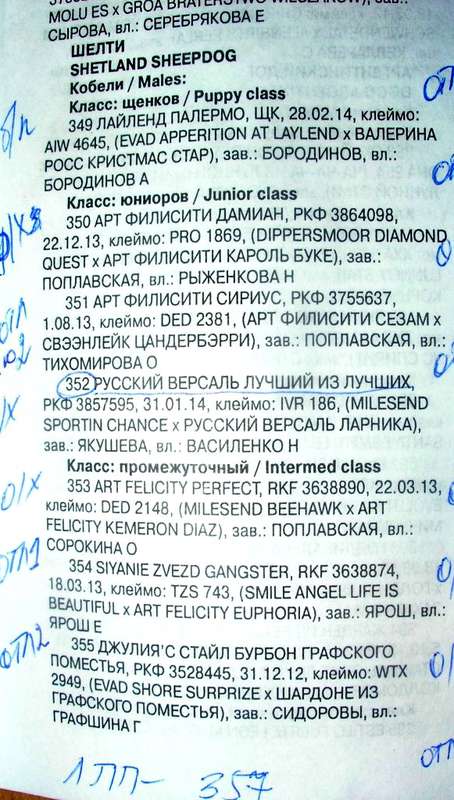 MOLU ES x GROA BRATERSTWO WIESZAKOW), зав.:
СЫРОВА, вл.: СЕРЕБРЯКОВА Е
ШЕЛТИ
SHETLAND SHEEPDOG
Кобели / Males:
Класс: щенков / Puppy class
349 ЛАЙЛЕНД ПАЛЕРМО, ЩК, 28.02.14, клеймо:
AIW 4645, (EVAD APPERITION AT LAYLEND x ВАЛЕРИНА
РОСС КРИСТМАС СТАР), зав.: БОРОДИНОВ, вл.:
БОРОДИНОВ А
о/п
Класс: юниоров / Junior class
350 АРТ ФИЛИСИТИ ДАМИАН, РКФ 3864098,
22.12.13, клеймо: PRO 1869, (DIPPERSMOOR DIAMOND
QUEST x АРТ ФИЛИСИТИ КАРОЛЬ БУКЕ), зав.:
ПОПЛАВСКАЯ, вл.: РЫЖЕНКОВА Н
351 АРТ ФИЛИСИТИ СИРИУС, РКФ 3755637,
1.08.13, клеймо: DED 2381, (АРТ ФИЛИСИТИ СЕЗАМ x
СВЭЭНЛЕЙК ЦАНДЕРБЭРРИ), зав.: ПОПЛАВСКАЯ, вл.:
ТИХОМИРОВА О
352 РУССКИЙ ВЕРСАЛЬ ЛУЧШИЙ ИЗ ЛУЧШИХ,
РКФ 3857595, 31.01.14, клеймо: IVR 186, (MILESEND
SPORTIN CHANCE x РУССКИЙ ВЕРСАЛЬ ЛАРНИКА),
зав.: ЯКУШЕВА, вл.: ВАСИЛЕНКО Н
Класс: промежуточный / Intermed class
353 ART FELICITY PERFECT, RKF 3638890, 22.03.13,
клеймо: DED 2148, (MILESEND BEEHAWK x ART
FELICITY KEMERON DIAZ), зав.: ПОПЛАВСКАЯ, вл.:
СОРОКИНА О
о/х
354 SIYANIE ZVEZD GANGSTER, RKF 3638874,
18.03.13, клеймо: TZS 743, (SMILE ANGEL LIFE IS
BEAUTIFUL x ART FELICITY EUPHORIA), зав.: ЯРОШ, вл.:
ЯРОШ Е
отл1
355 ДЖУЛИЯ'С СТАЙЛ БУРБОН ГРАФСКОГО
ПОМЕСТЬЯ, РКФ 3528445, 31.12.12, клеймо: WTX
2949, (EVAD SHORE SURPRIZE x ШАРДОНЕ ИЗ
ГРАФСКОГО ПОМЕСТЬЯ), зав.: СИДОРОВЫ, вл.:
ГРАФШИНА Г
отл2
1ПП- 357